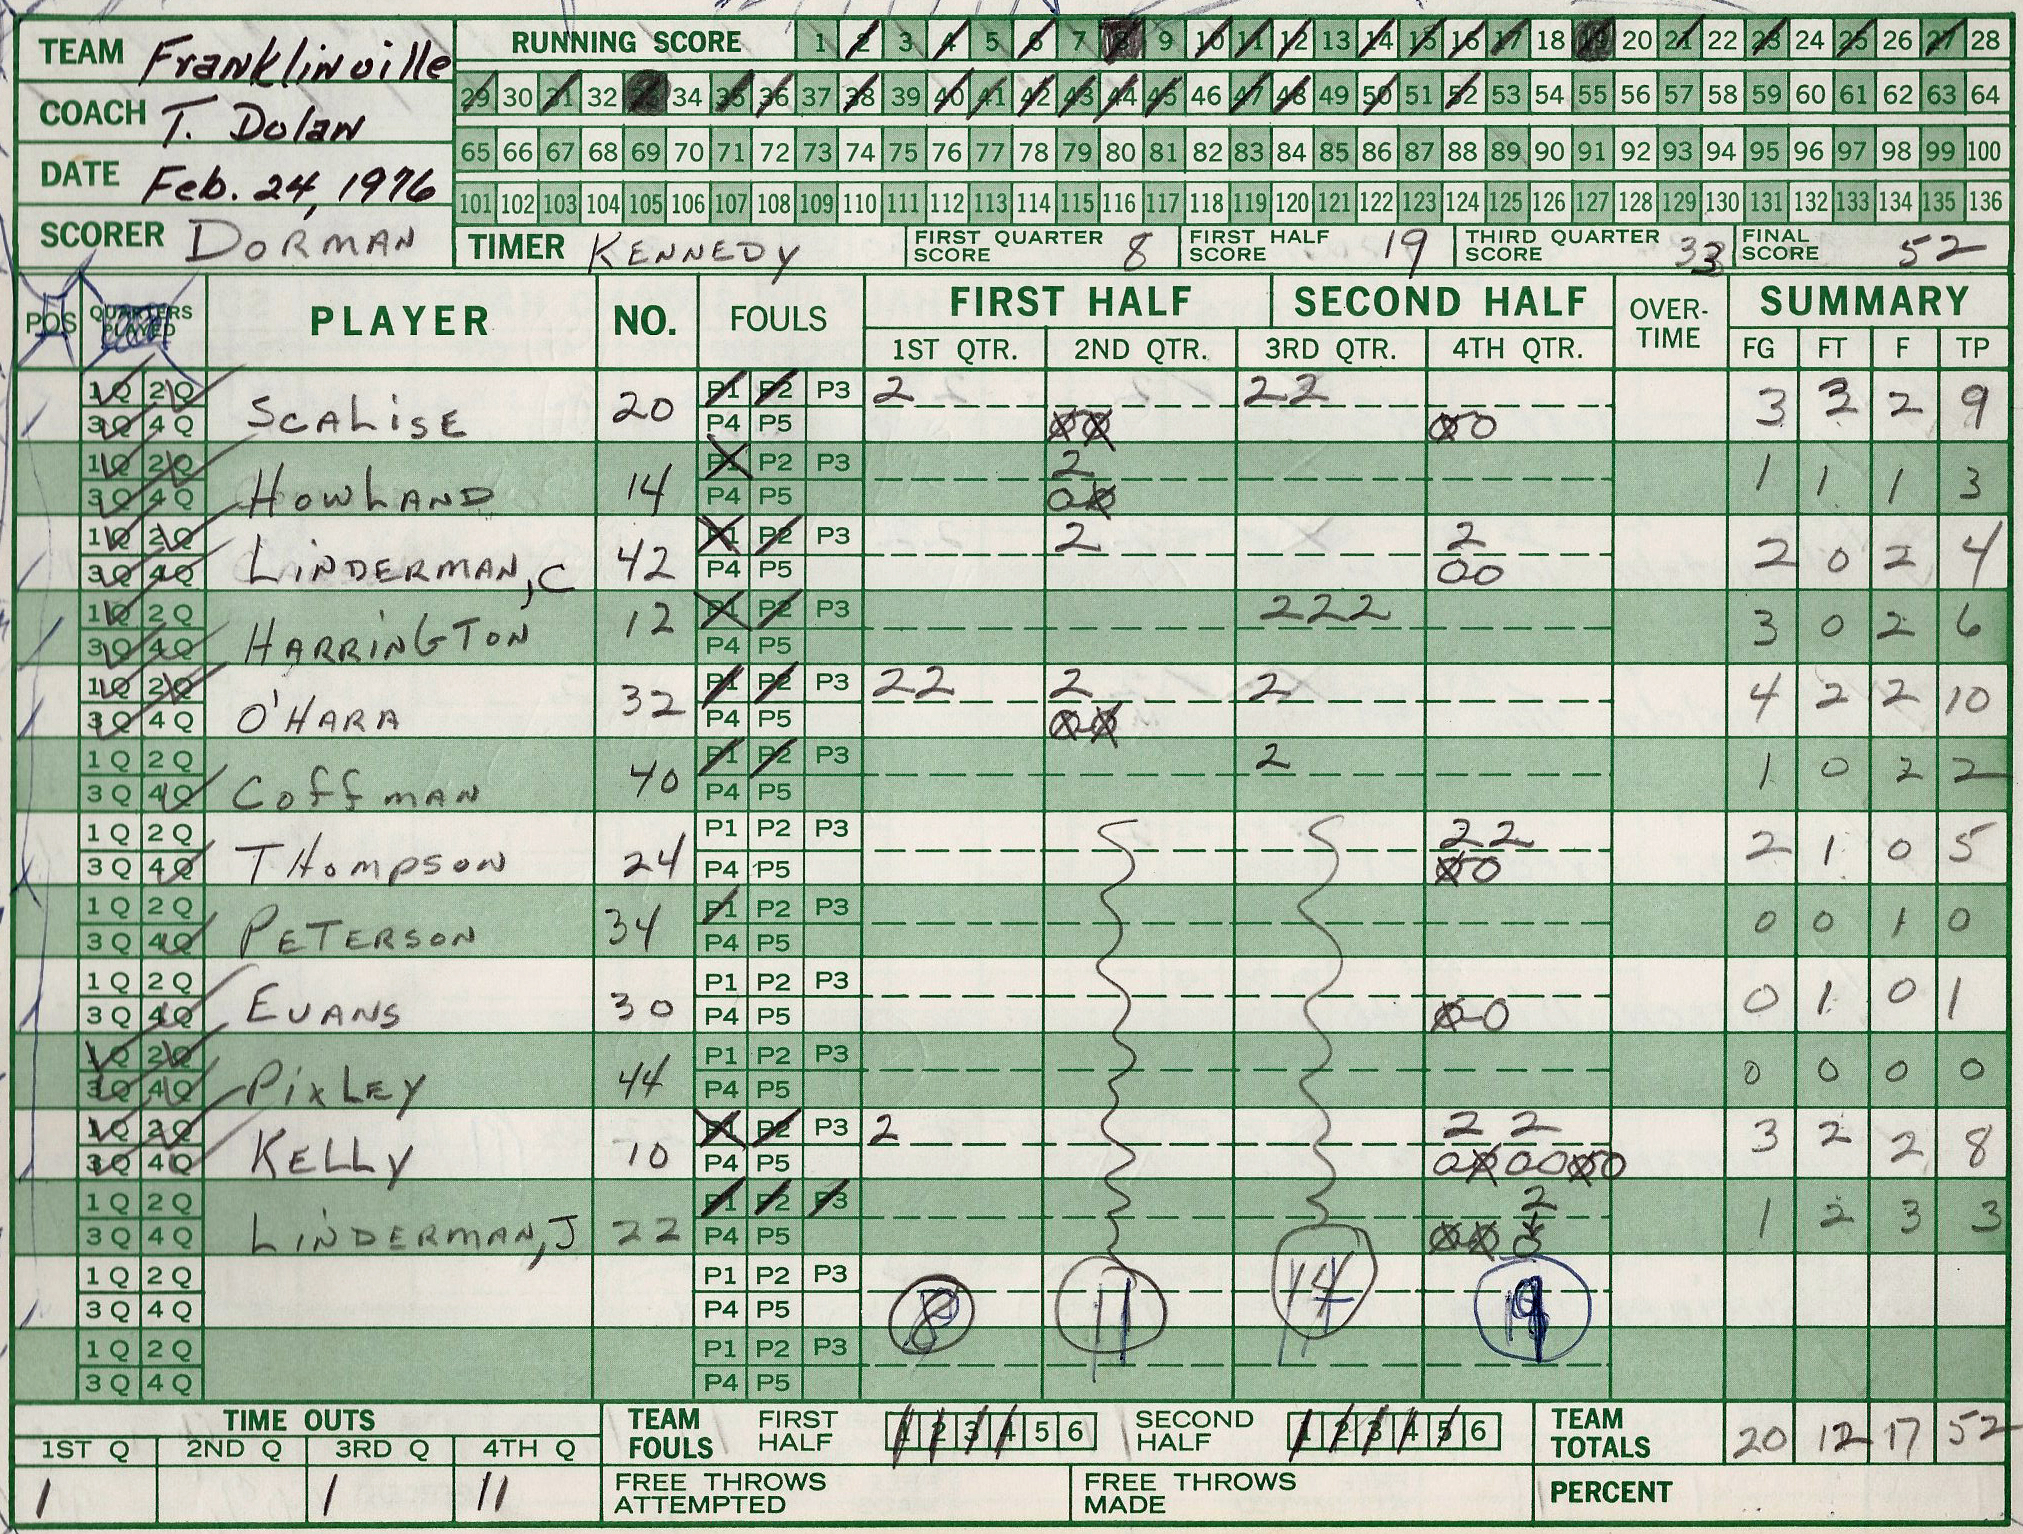 TEAM Franklinville
COACH T. Dolan
DATE Feb. 24, 1976
SCORER DORMAN
RUNNING SCORE 1 2 3 4 5 6 7 8 9 10 11 12 13 14 15 16 17 18 19 20 21 22 23 24 25 26 27 28
29 30 31 32 33 34 35 36 37 38 39 40 41 42 43 44 45 46 47 48 49 50 51 52 53 54 55 56 57 58 59 60 61 62 63 64
65 66 67 68 69 70 71 72 73 74 75 76 77 78 79 80 81 82 83 84 85 86 87 88 89 90 91 92 93 94 95 96 97 98 99 100
101 102 103 104 105 106 107 108 109 110 111 112 113 114 115 116 117 118 119 120 121 122 123 124 125 126 127 128 129 130 131 132 133 134 135 136
TIMER KENNEDY FIRST QUARTER SCORE 8 FIRST HALF SCORE 19 THIRD QUARTER SCORE 33 FINAL SCORE 52
POS QUARTERS PLAYED PLAYER NO. FOULS FIRST HALF SECOND HALF OVER-TIME SUMMARY
1ST QTR. 2ND QTR. 3RD QTR. 4TH QTR. FG FT F TP
1Q 2Q P1 P2 P3 2 22
3Q 4Q SCALISE 20 P4 P5 00 00 3 3 2 9
1Q 2Q P1 P2 P3 2
3Q 4Q HOWLAND 14 P4 P5 00 1 1 1 3
1Q 2Q P1 P2 P3 2 2
3Q 4Q LINDERMAN, C 42 P4 P5 00 2 0 2 4
1Q 2Q P1 P2 P3 222
3Q 4Q HARRINGTON 12 P4 P5 3 0 2 6
1Q 2Q P1 P2 P3 22 2 2
3Q 4Q O'HARA 32 P4 P5 00 4 2 2 10
1Q 2Q P1 P2 P3 2
3Q 4Q COFFMAN 40 P4 P5 1 0 2 2
1Q 2Q P1 P2 P3 22
3Q 4Q THOMPSON 24 P4 P5 00 2 1 0 5
1Q 2Q P1 P2 P3
3Q 4Q PETERSON 34 P4 P5 0 0 1 0
1Q 2Q P1 P2 P3
3Q 4Q EVANS 30 P4 P5 00 0 1 0 1
1Q 2Q P1 P2 P3
3Q 4Q PIXLEY 44 P4 P5 0 0 0 0
1Q 2Q P1 P2 P3 2 2 2
3Q 4Q KELLY 10 P4 P5 000000 3 2 2 8
1Q 2Q P1 P2 P3 2
3Q 4Q LINDERMAN, J 22 P4 P5 000 1 2 3 3
1Q 2Q P1 P2 P3
3Q 4Q P4 P5 8 11 14 19
1Q 2Q P1 P2 P3
3Q 4Q P4 P5
TIME OUTS TEAM FOULS FIRST HALF 1 2 3 4 5 6 SECOND HALF 1 2 3 4 5 6 TEAM TOTALS 20 12 17 52
1ST Q 2ND Q 3RD Q 4TH Q
1 1 11 FREE THROWS ATTEMPTED FREE THROWS MADE PERCENT